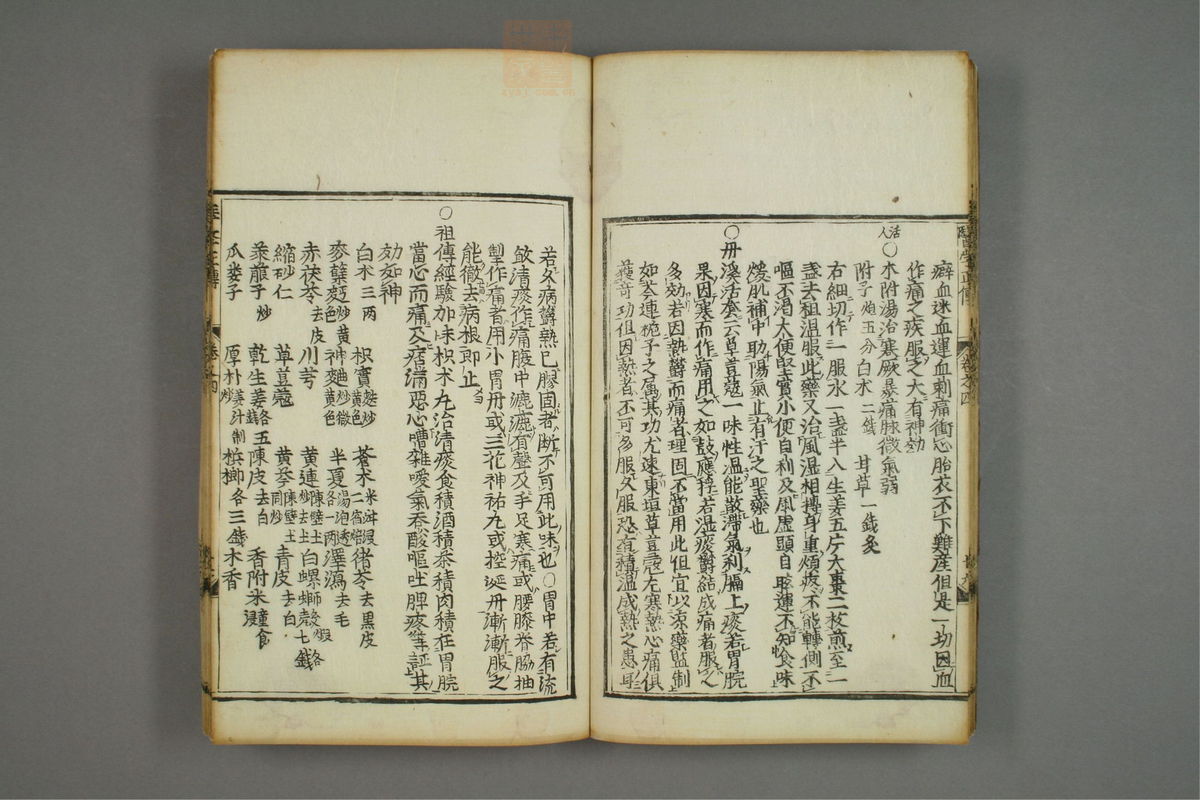 癖血迷血運血刺痛衝心胎衣不下難産但是一切因血
作痛之疾服之大有神効
活人
○朮附湯治寒厥暴痛脉微氣弱
附子炮五分白朮二錢 甘草一錢炙
右細切作一服水一盞半入生姜五片大棗二枚煎至一
盞去粗温服此藥又治風湿相摶身重煩疼不能轉側不
嘔不渴大便堅實小便自利及風虚頭目眩運不知食味
煖肌補中助陽氣止有汗之聖藥也
○丹溪活套云草荳蔲一味性温能散滯氣利膈上痰若胃脘
果因寒而作痛用之如鼓應桴若湿痰鬱結成痛者服之
多効若因熱鬱而痛者理固不當用此但宜以凉藥監制
如芩連梔子之属其功尤速東垣草荳蔲丸寒熱心痛俱
獲奇功但因熱者不可多服久服恐有積温成熱之患耳
若久病鬱熱已膠固者断不可用此味也○胃中若有流
飲清痰作痛腹中漉漉有聲及手足寒痛或腰膝脊脇抽
掣作痛者用小胃丹或三花神祐丸或控涎丹漸漸服之
能徹去病根即止
○祖傳經驗加味枳朮丸治清痰食積酒積茶積肉積在胃脘
當心而痛及痞滿惡心嘈雜噯氣吞酸嘔吐脾疼等証其
効如神
白朮三兩 枳實麩炒黄色 蒼朮米泔浸二宿焙 猪苓去黒皮
麥蘗麪炒黄色 神麯炒微黄色 半夏湯泡透各一兩 澤瀉去毛
赤茯苓去皮 川芎 黄連陳壁土炒去土 白螺螄殻煅各七錢
縮砂仁 草荳蔲 黄芩陳壁土同炒 青皮去白
萊菔子炒 乾生姜各五錢 陳皮去白 香附米浸童食
瓜蔞子 厚朴姜汁制炒 梹榔各三錢 木香